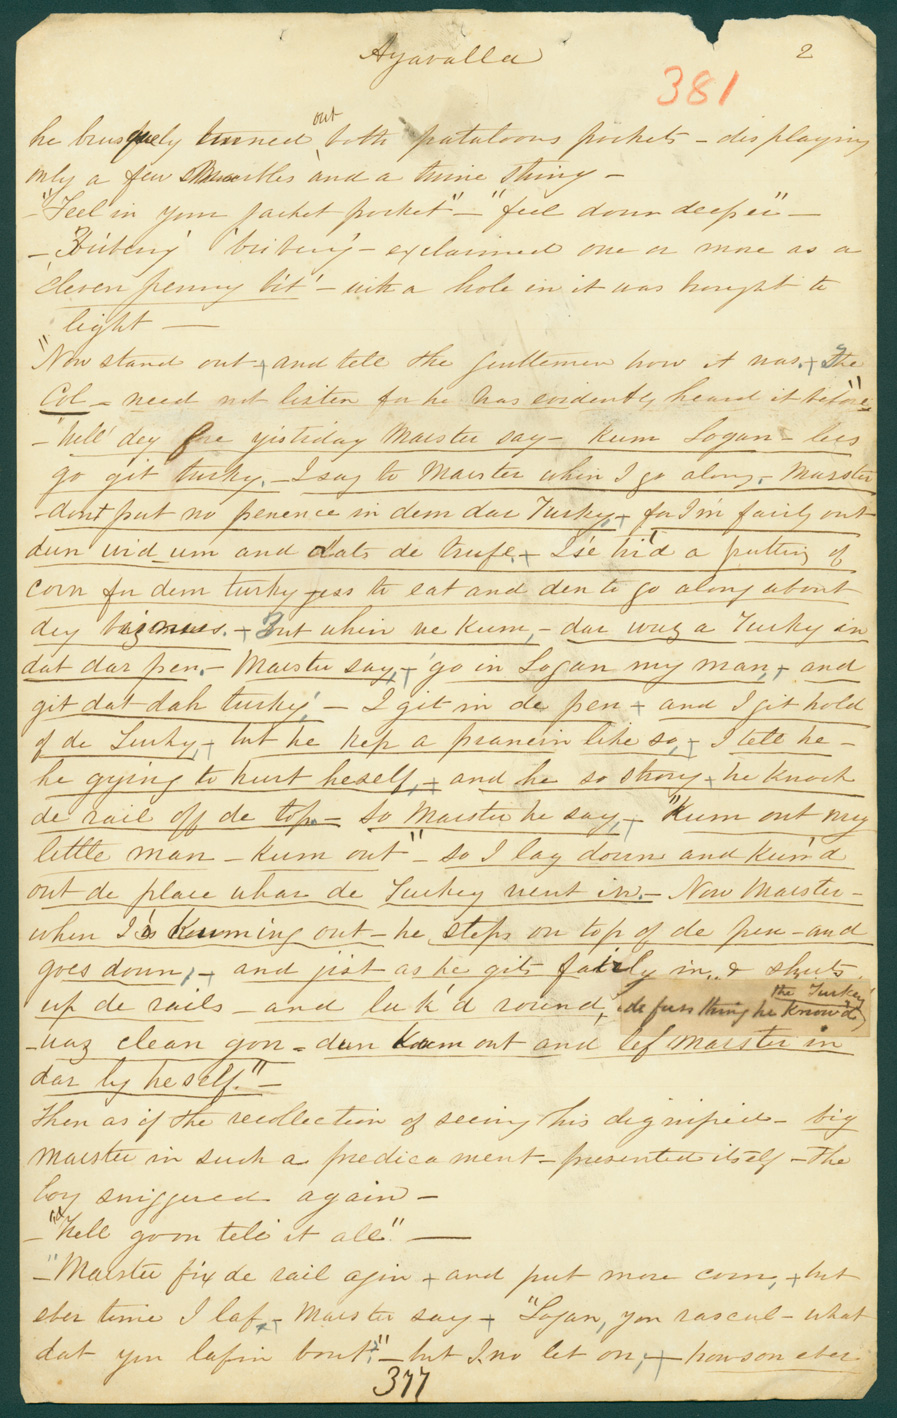 Ayavalla
2
381
he brusquely turned out both pataloons pockets - displaying
only a few marbles and a twine string -
- "Feel in your jacket pocket" - "feel down deeper" -
- 'Bribery' 'bribery' - exclaimed one or more as a
'eleven penny bit' - with a hole in it was brought to
light -
"Now stand out + and tell the gentlemen how it was. + The
Col - need not listen for he has evidently heard it before"
- 'Well' dey fore yistiday Marster say - Kum Logan - les
go git turky. - I say to Marster when I go along, - Marster
- dont put no penence in dem dar Turky, + for I'm fairly out
dun wid um and dats de trufe. + I'se tri'd a putting of
corn for dem turky - jess to eat and den to go along about
dey bizniss. + But when we Kum, - dar wuz a Turky in
dat dar pen. - Marster say, + 'go in Logan my man, + and
git dat dah turky,' - I git in de pen + and I git hold
of de Turky, + but he kep a prancin like so, + I tell he -
he grying to hurt heself, + and he so strong + he knock
de rail off de top. - So Marster he say, + "Kum out my
little man - Kum out" - so I lay down and Kum'd
out de place whar de Turkey went in. - Now Marster -
when I's Kuming out - he steps on top of de pen - and
goes down, + and jist as he gits fairly in, & shuts
up de rails - and luk'd round, de furs thing he know'd the Turkey
- waz clean gon - dun Kum out and lef Marster in
dar by heself." -
Then as if the recollection of seeing his dignified - big
marster in such a predicament - presented itself - the
boy sniggered again -
- "Well go on tell it all" -
- "Marster fix de rail agin + and put more corn, + but
eber time I laf, + Marster say + "Logan, you rascul - what
dat you lafin bout?" - but I no let on, + howsoneber
377